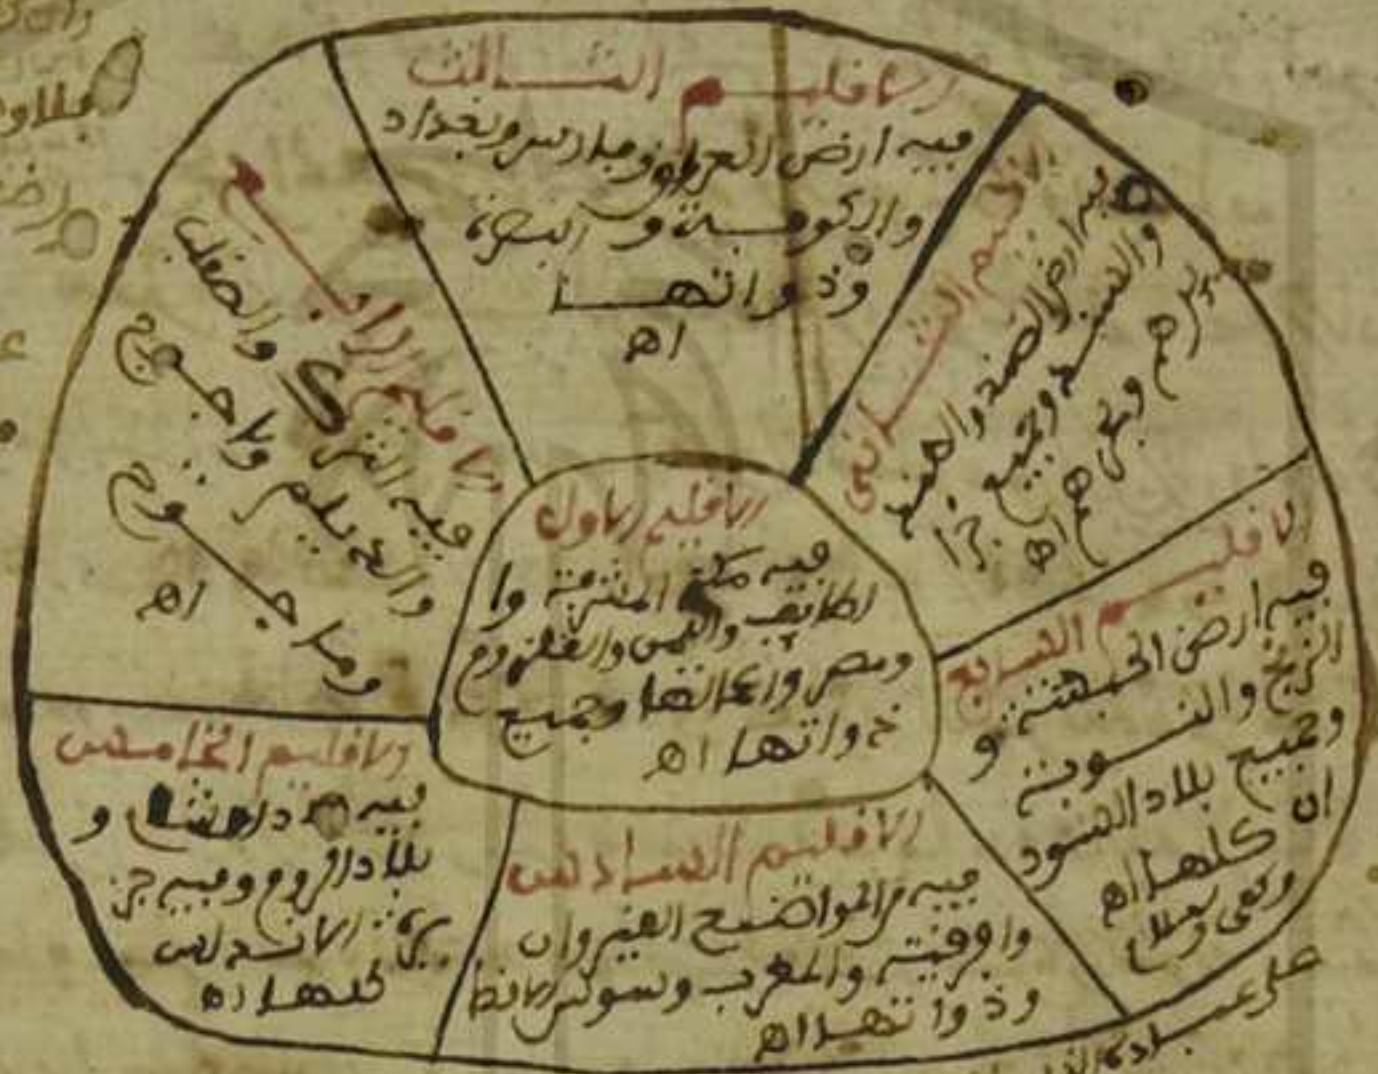 الاقليم الثالث
فيه ارض العراق وفارس وبغداد
والكوفة والبصرة
وذواتها
اه
الاقليم الثاني
فيه ارض الصند والهند
والسند وجميع جزا
يرهم وبحرهم اه
الاقليم الرابع
فيه الترك والصقلب
والديلم وياجوج
وماجوج
اه
الاقليم الاول
فيه مكة المشرفة وا
لطايف واليمن والقلزوم
ومصر واعمالها وجميع
ذواتها اه
الاقليم السابع
فيه ارض الحبشة و
الزنج والنوبة
وجميع بلاد السود
ان كلها اه
الاقليم الخامس
فيه بلاد الشام و
بلاد الروم وفيه جز
يرة الاندلس
كلها اه
الاقليم السادس
فيه من المواضيع القيروان
وافرقية والمغرب وسوس الاقصا
وذواتها اه